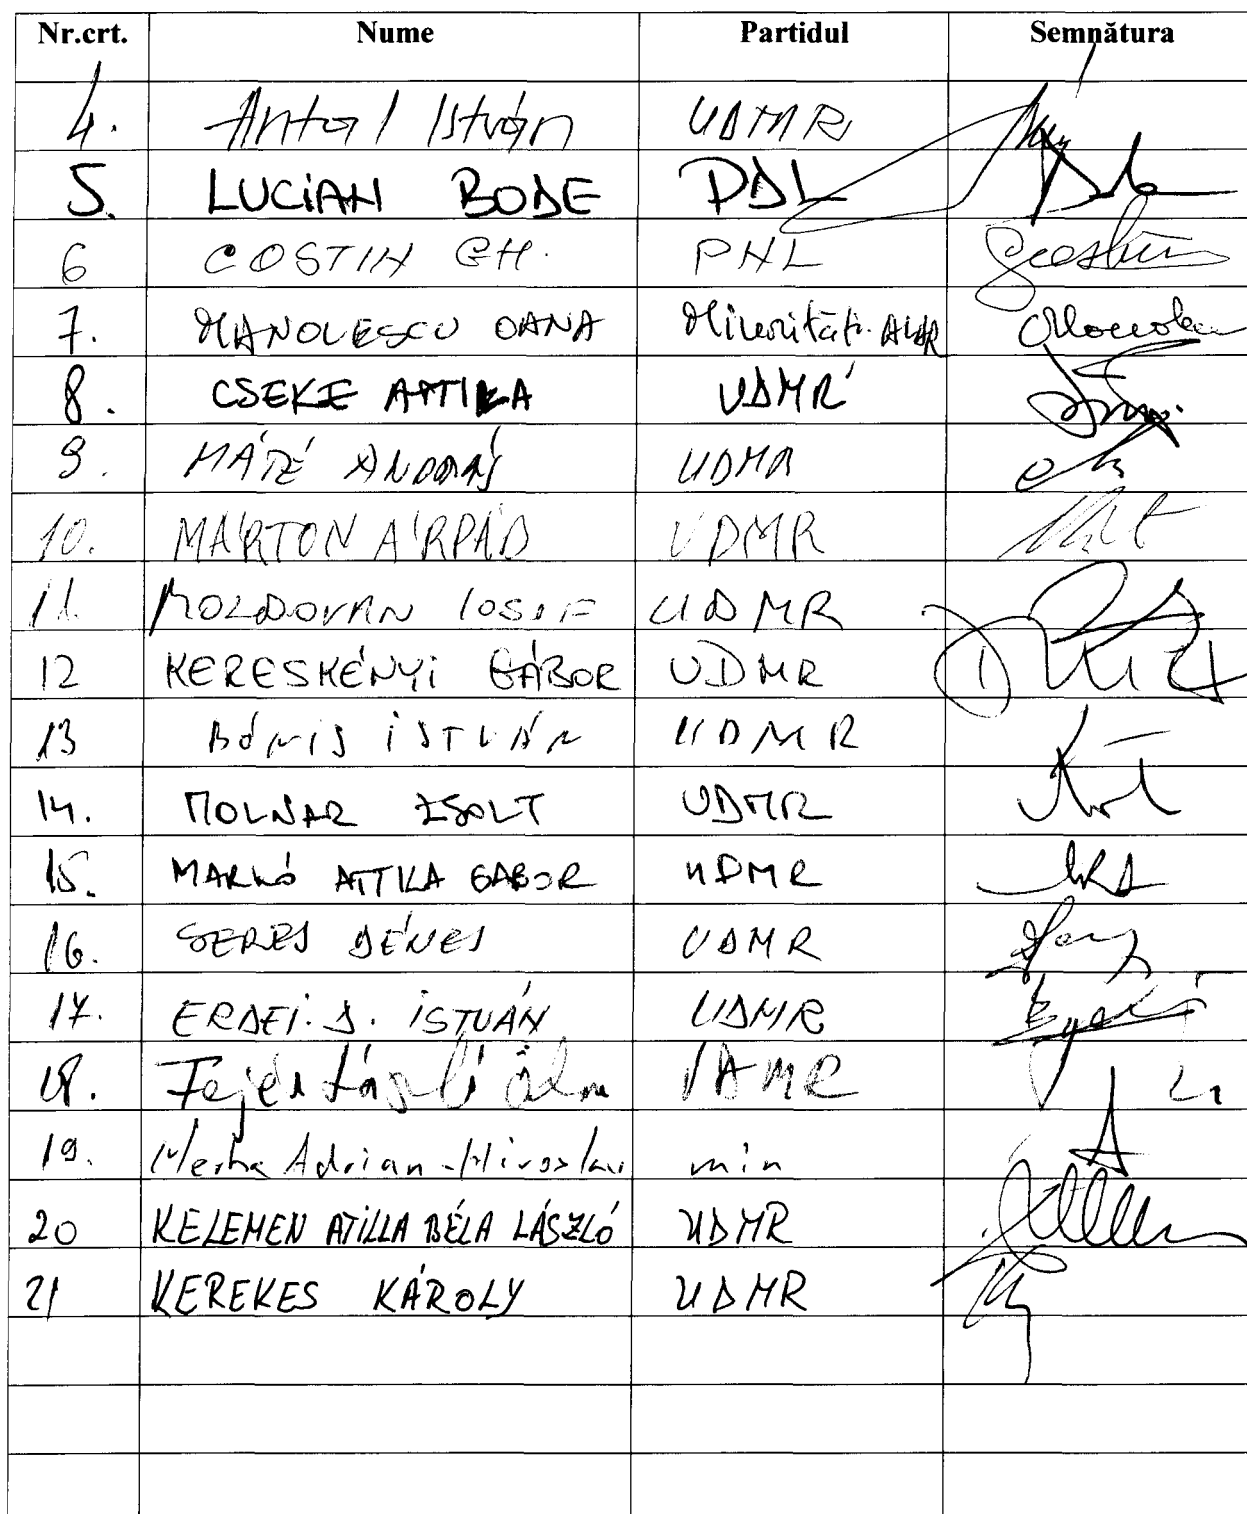 Nr.crt. Nume Partidul Semnătura
4. Antal István UDMR
5. LUCIAN BODE PDL
6 COSTIN GH. PNL
7. MANOLESCU OANA Minorităti. ALAR
8. CSEKE ATTILA UDMR
9. MÁTÉ ANDRÁS UDMR
10. MÁRTON ÁRPÁD UDMR
11. MOLDOVAN IOSIF UDMR
12 KERESKÉNYI GÁBOR UDMR
13 BÓNIS ISTVÁN UDMR
14. MOLNAR ZSOLT UDMR
15. MARKÓ ATTILA GABOR UDMR
16. SERES DÉNES UDMR
17. ERDEI. D. ISTVÁN UDMR
18. Fejér László Ödön UDMR
19. Merka Adrian-Miroslav min
20 KELEMEN ATILLA BÉLA LÁSZLÓ UDMR
21 KEREKES KÁROLY UDMR